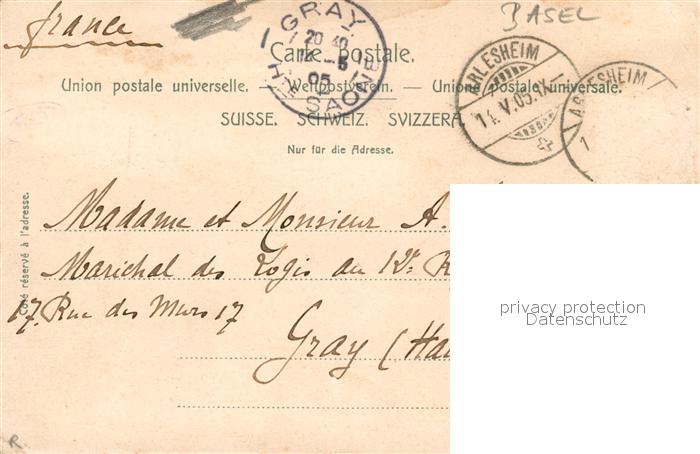 france
BASEL
GRAY
Carte postale.
Union postale universelle. — Weltpostverein. — Unione postale universale.
SUISSE. SCHWEIZ. SVIZZERA.
Nur für die Adresse.
ARLESHEIM
ARLESHEIM
Côté réservé à l'adresse.
Madame et Monsieur A.
Marichal des Logis au 12e R
17, Rue des Murs 17
Gray (Hau
privacy protection
Datenschutz
R